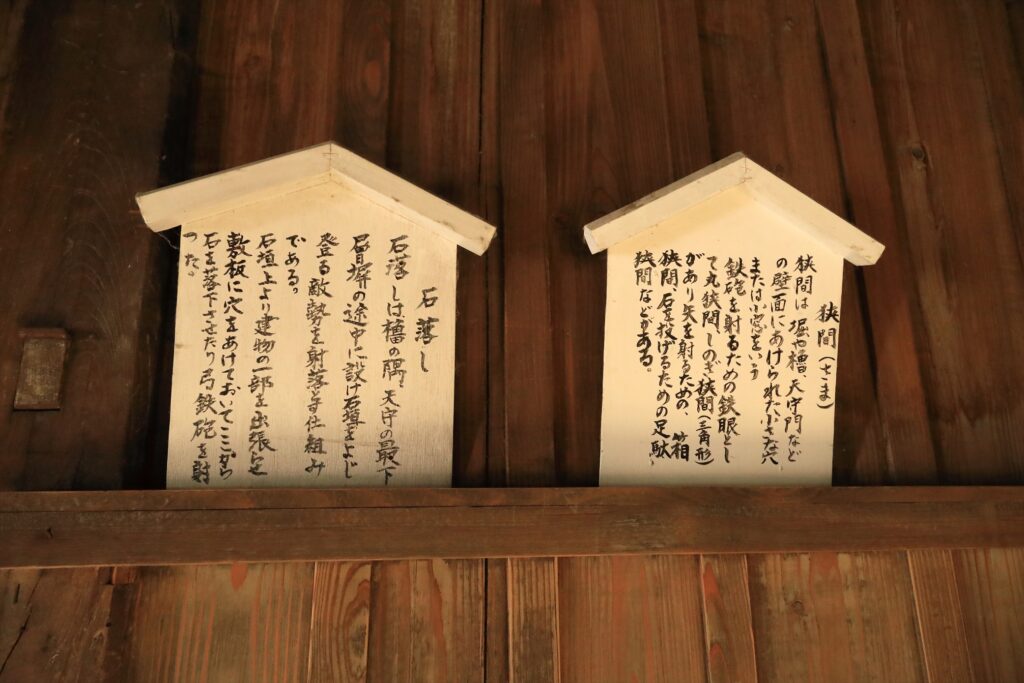 狭間(さま)
狭間は堀や櫓、天守門など
の壁面にあけられた小さな穴
または小窓をいう
鉄砲を射るための鉄眼とし
て丸狭間しのぎ狭間(三角形)
があり矢を射るための、箱
狭間、石を投げるための足駄
狭間などがある。
石落し
石落しは櫓の隅、天守の最下
層塀の途中に設け石垣をよじ
登る敵勢を射落とす仕組み
である。
石垣上より建物の一部を出張らせ
敷板に穴をあけておいてここから
石を落下させたり弓鉄砲を射
った。